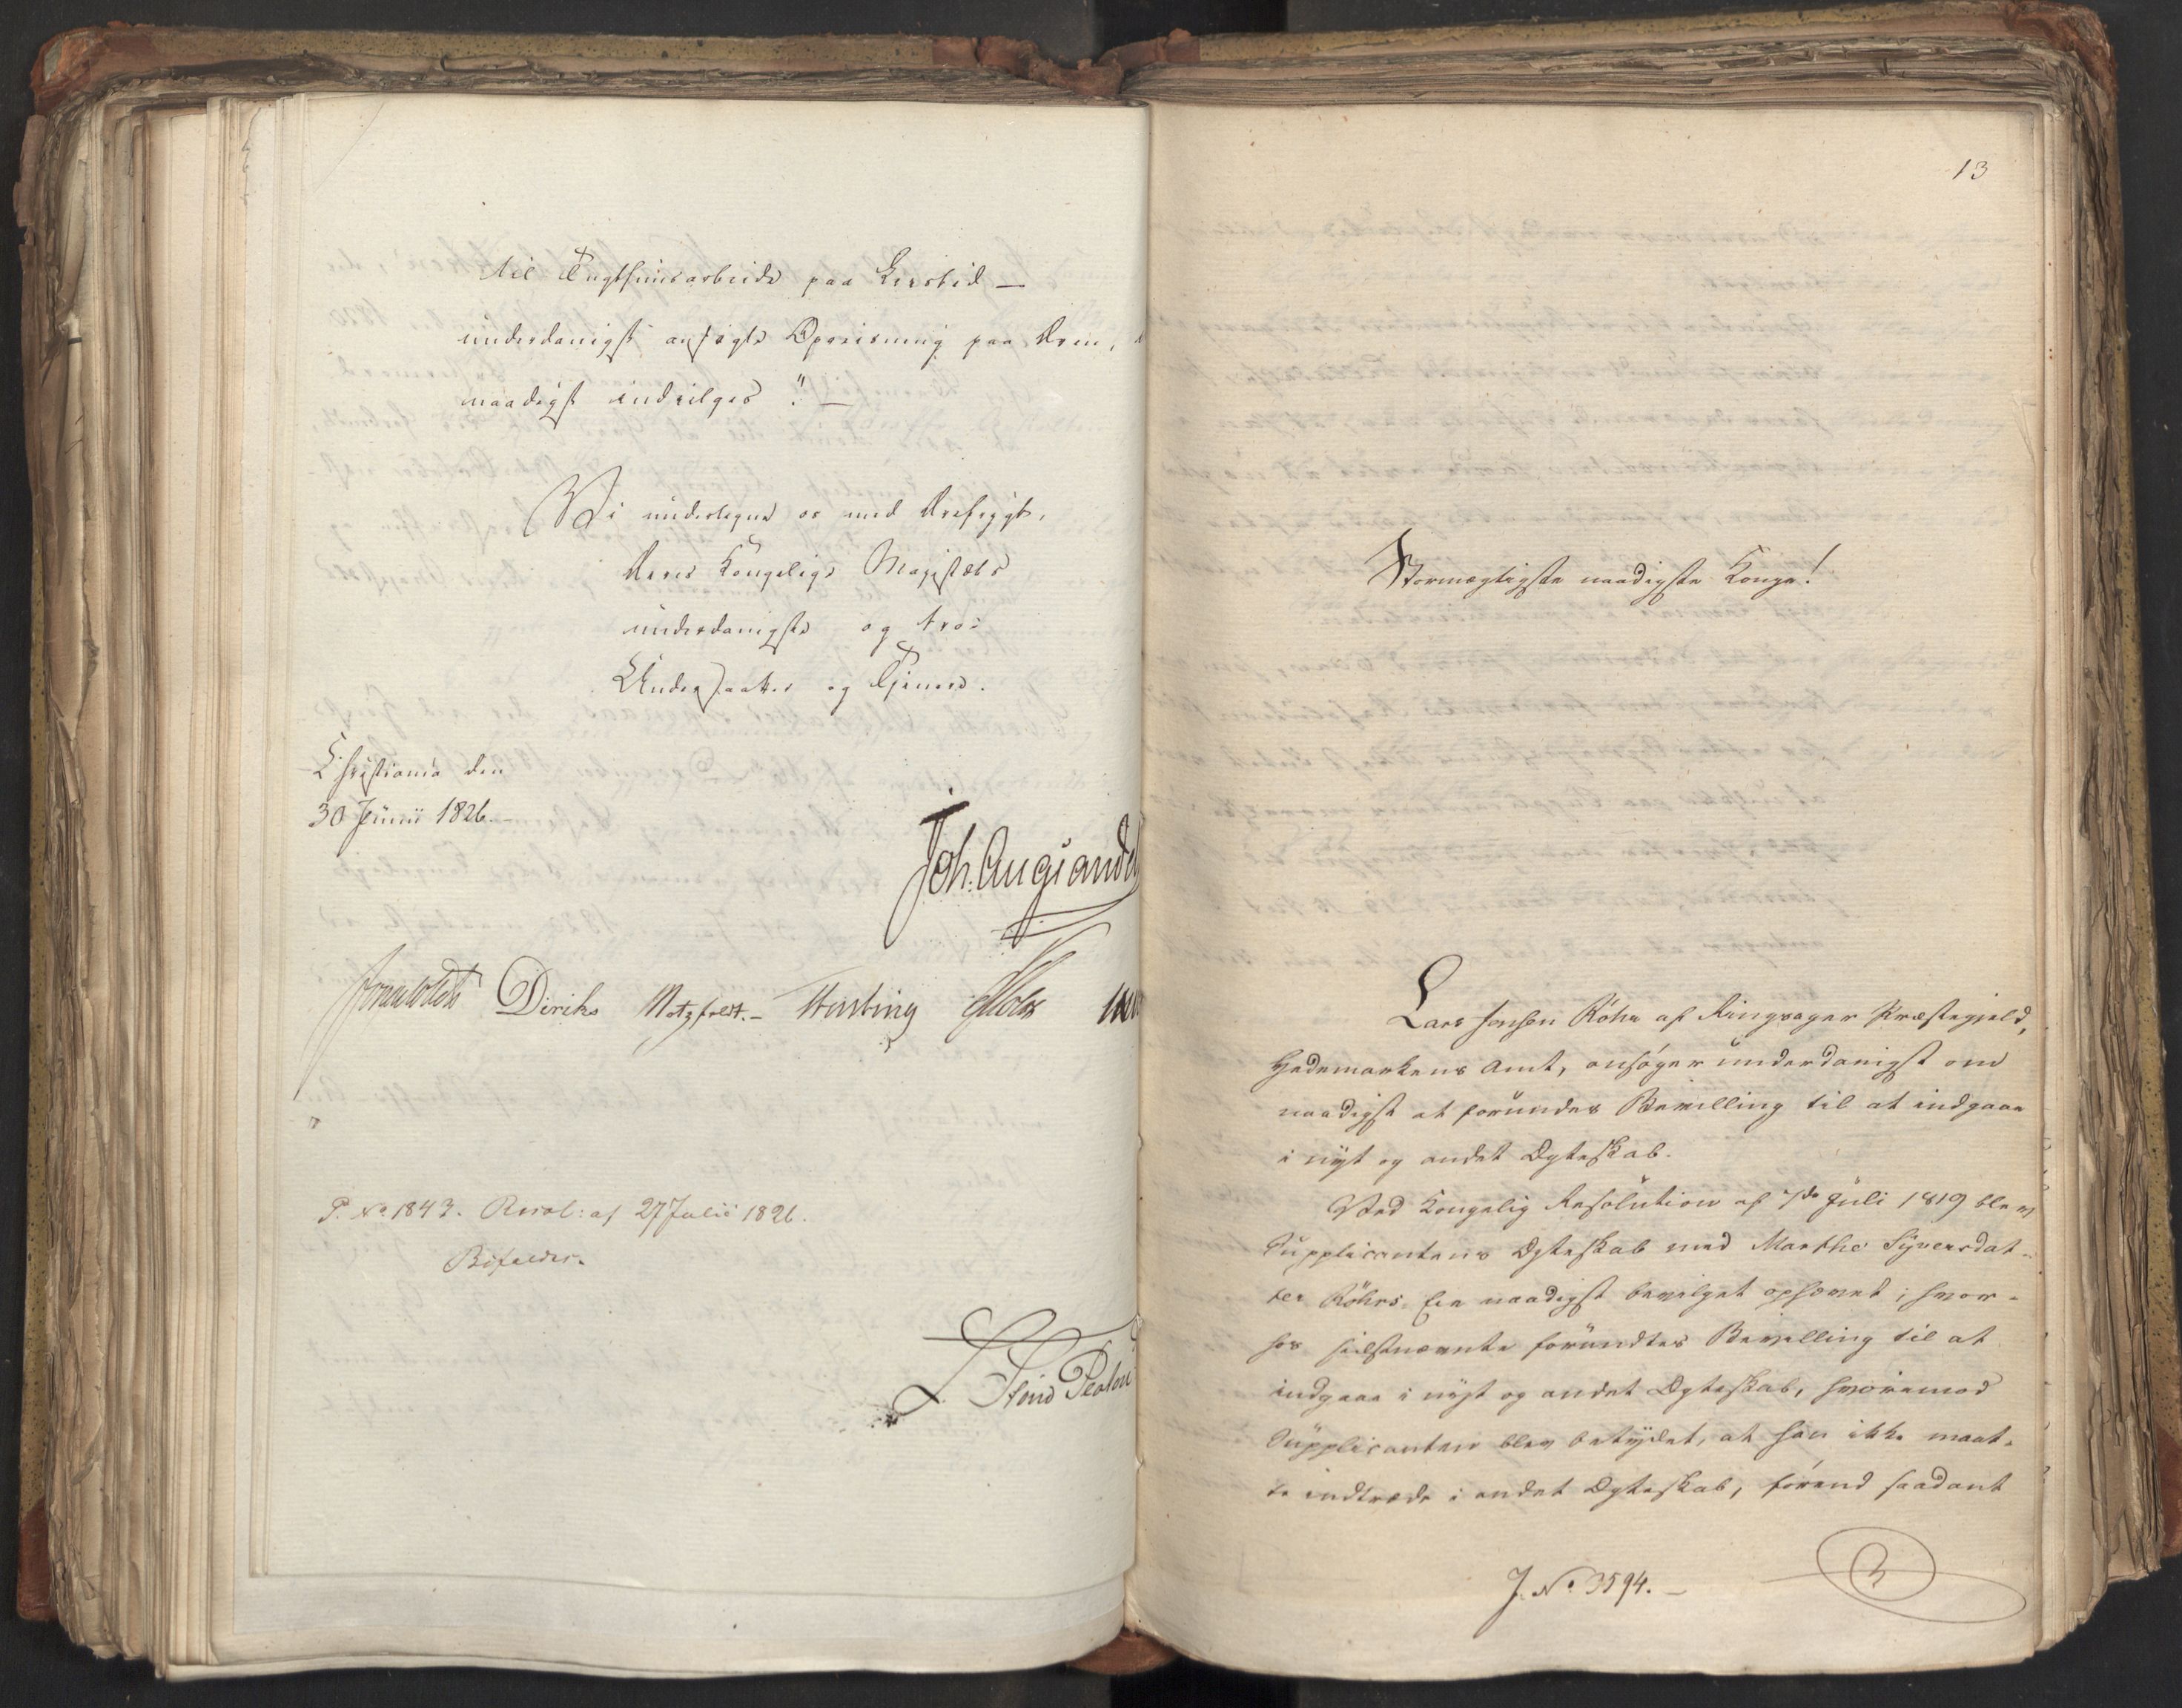 til Tugthuusarbeide paa Livstid —
underdanigst ansøgte Opreisning paa Æren,
naadigst indvilges". —
Vi undertegne os med Ærefrygt,
Deres Kongelige Majestæts
underdanigste og troe
Undersaatter og Tjenere.
Christiania den
30 Junii 1826.
Joh: Aug: Sandel
Diriks Motzfeldt. – Holst
P. No 1843. Resol: af 27 Julii 1826.
Bifaldes.
13
Stormægtigste naadigste Konge!
Lars Jensen Röhne af Ringsager Præstegjeld,
Hedemarkens Amt, ansöger underdanigst om
naadigst at forundes Bevilling til at indgaae
i nyt og andet Ægteskab.
Ved Kongelig Resolution af 7de Juli 1819 blev
Supplicantens Ægteskab med Marthe Syversdat-
ter naadigst bevilget ophævet; hvor-
hos sidstnævnte forundtes Bevilling til at
indgaae i nyt og andet Ægteskab, hvorimod
Supplicanten blev betydet, at han ikke maat-
te indtræde i andet Ægteskab, förend saadant
J. No 3594. —